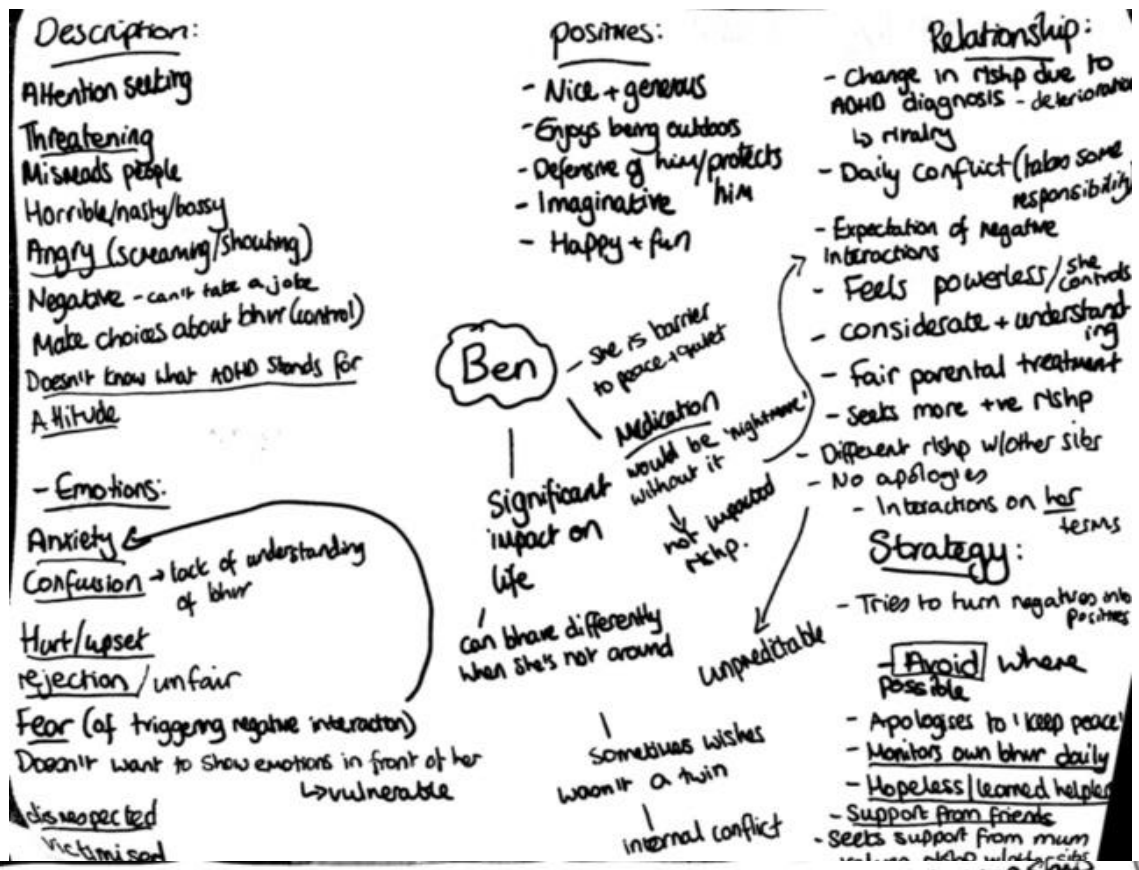 Description:
Attention seeking
Threatening
Misreads people
Horrible/nasty/bossy
Angry (screaming/shouting)
Negative - can't take a joke
Make choices about bhvr (control)
Doesn't know what ADHD stands for
Attitude
- Emotions:
Anxiety
Confusion → lack of understanding
of bhvr
Hurt/upset
rejection/unfair
Fear (of triggering negative interaction)
Doesn't want to show emotions in front of her
↳ vulnerable
disrespected
victimised
positives:
- Nice + generous
- Enjoys being outdoors
- Defensive of him/protects
him
- Imaginative
- Happy + fun
Ben
- She is barrier
to peace + quiet
Medication
would be 'nightmare'
without it
not impacted
rlshp.
Significant
impact on
life
can bhave differently
when she's not around
unpredictable
sometimes wishes
wasn't a twin
internal conflict
Relationship:
- Change in rlshp due to
ADHD diagnosis - deterioration
↳ rivalry
- Daily conflict (takes some
responsibility)
- Expectation of negative
interactions
- Feels powerless/she
controls
- considerate + understand
ing
- Fair parental treatment
- Seeks more +ve rlshp
- Different rlshp w/other sibs
- No apologies
- Interactions on her
terms
Strategy:
- Tries to turn negatives into
positives
- Avoid where
possible
- Apologises to 'keep peace'
- Monitors own bhvr daily
- Hopeless/learned helples
- Support from friends
- Seeks support from mum
rlshp w/other sibs